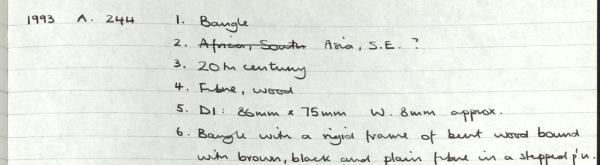 1993 A. 244 1. Bangle
2. Africa, South Asia, S.E. ?
3. 20th century
4. Fibre, wood
5. DI: 86mm x 75mm W. 8mm approx.
6. Bangle with a rigid frame of bent wood bound
with brown, black and plain fibre in a stepped p'n.